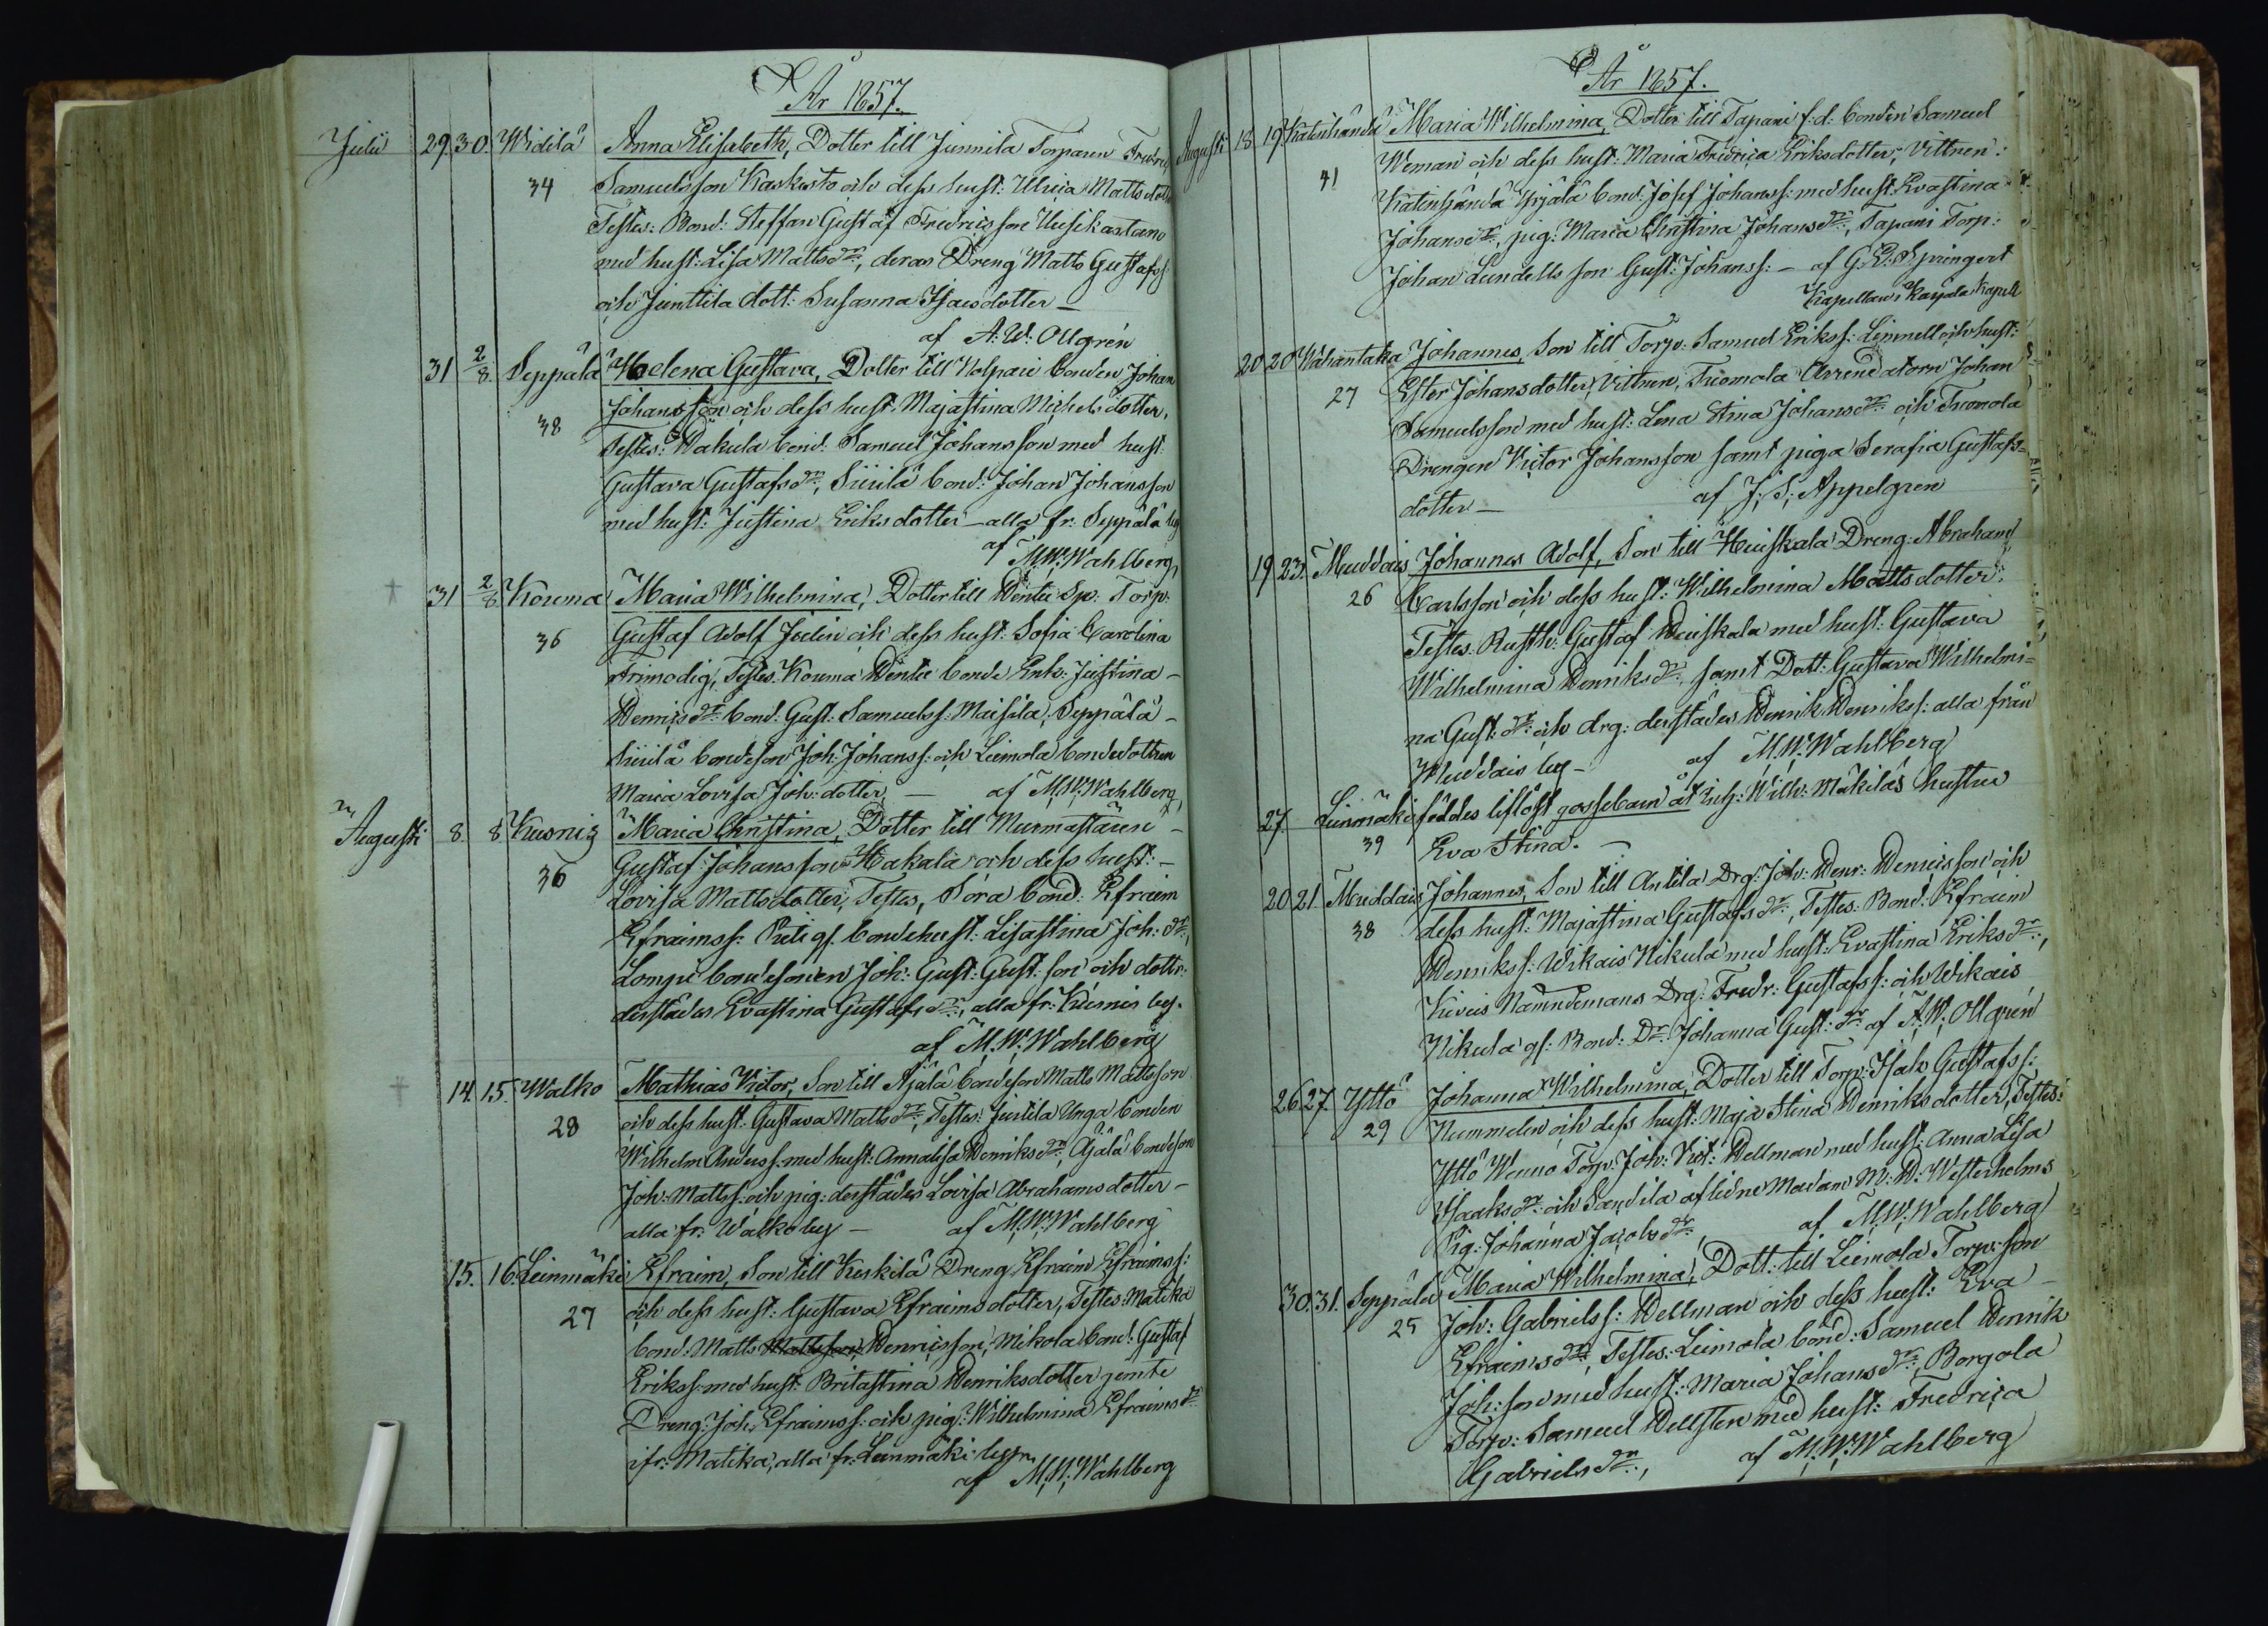 År 1857.
Julii 29 30. Widilä Anna Elisabeth, Dotter till Junnila Torparen Fredric
34 Samuelsson Kaskisto och dess hust: Ulrica Matts dott
Testes: Bond: Steffan Gustaf Fredricsson Uusikartano
med hust: Lisa Mattsdr, deras Dreng Matts Gustafss:
och Junttila dott: Susanna Isacsdotter —
af A: W: Ollgrén
31 2/8. Seppälä Helena Gustava, Dotter till Kolpari bonden Johan
38 Johansson och dess hust. Majastina Michelsdotter,
Testes: Wakula bond: Samuel Johansson med hust:
Gustava Gustafsdr, Siiilä bond: Johan Johansson
med hust: Justina Eriksdotter — alla fr: Seppälä by
af M.W.Wahlberg,
31 2/8 Kouma Maria Wilhelmina, Dotter till Torp:
36 Gustaf Adolf Julin och dess hust: Sofia Carolina
Frimodig, Testes. Kouma bonde Enk: Justina —
Henricsdr bond: Gust: Samuelss: Maisila, Seppälä —
Siiilä bondeson Joh: Johanss: och Liemola bondedottren
Maria Lovisa Joh: dotter, — af M.W.Wahlberg,
Augusti 8. 8 Kusniz Maria Christina, Dotter till Murmästaren —
36 Gustaf Johansson Hakala och dess hust: —
Lovisa Mattsdotter, Testes, Sora bond: Efraim
Efraimss: bondehust: Lisastina Joh: dr,
Lompi bondesonen Joh: Gust: Gust: son och dottr:
derstädes Evastina Gustafsdr, alla fr: Kusnis by.
af M.W.Wahlberg
14. 15. Walko Mathias Victor, Son till Äjälä bondeson Matts Mattsson
28 och dess hust. Gustava Mattsdr, Testes: Juntila Unga bonden
Wilhelm Anderss: med hust: Annalisa Henriksdr, Äjälä bondeson
Joh: Mattss: och pig: derstädes Lovisa Abrahamsdotter —
alla fr: Walko by — af M.W.Wahlberg
15. 16. Leinmäki Efraim, Son till Keskilä Dreng Efraim Efraimss:
27 och dess hust: Gustava Efraimsdotter, Testes: Matika
bond: Matts Mattsson, Henricsson, Mikola bond: Gustaf
Erikss: med hust: Britastina Henriksdotter jemte
Dreng: Joh: Efraimss: och pig: Wilhelmina Efraimsdr
ifr: Matika, alla fr: Leinmäki by
af M.W.Wahlberg
År 1857.
Augusti 18 19 Katinhändä Maria Wilhelmina, Dotter till Tapani f: d: bonden Samuel
41 Weman och dess hust: Maria Fredrica Eriksdotter, Vittnen:
Katinhändä Yrjälä bond: Josef Johanss: med hust: Evastina
Johansdr, pig: Maria Christina Johansdr, Tapani Torp:
Johan Lundells son Gust: Johanss: — af G.E. Springert
Kapellan i Karjala Kapell
20 20 Wähäntaka Johannes, Son till Torp: Samuel Erikss: Linnell och hust:
27 Ester Johansdotter, Vittnen, Tuomola Arrendatorn Johan
Samuelsson med hust: Lena Stina Johansdr och Tuomola
Drengen Victor Johansson samt piga Serafia Gustafs-
dotter — af J: S: Appelgren
19 23. Muddais Johannes Adolf, Son till Heiskala Dreng: Abraham
26 Carlsson och dess hust: Wilhelmina Mattsdotter,
Testes. Rusth: Gustaf Heiskala med hust: Gustava
Wilhelmina Henriksdr, samt Dott: Gustava Wilhelmi=
na Gust: dr och drg: derstädes Henrik Henrikss: alla från
Muddais by — af M.W.Wahlberg
27. Leinmäki föddes liflöst gossebarn åt Wilh: Mäkiläs hustru
39 Eva Stina. —
20 21. Muddais Johannes, Son till Antila Drg: Joh: Henr: Henricsson och
38 dess hust: Majastina Gustafsdr, Testes: Bond: Efraim
Henrikss: Wikais Nikula med hust: Evastina Eriksdr,
Nämndemans Drg: Fredr: Gustafss: och Wikais
Nikula gl: Bond: Dr Johanna Gust: dr af A.W: Ollgrén
26 27. Yttö Johanna Wilhelmina, Dotter till Torp: Isak Gustafss:
29 Nummelin och dess hust: Maja Stina Henriksdotter, Testes:
Yttö Torp: Joh: Vict: Hellman med hust: Anna Lisa
Isaaksdr och Sandila aflidne Madam M: H: Westerholms
Pig: Johanna Jacobsdr, af M.W.Wahlberg
30. 31. Seppälä Maria Wilhelmina, Dott: till Liemola Torp: son
25 Joh: Gabrielss: Hellman och dess hust: Eva —
Efraimsdr, Testes: Liemola bond: Samuel Henrik
Joh: son med hust: Maria Johansdr, Borgola
Torp: Samuel Hellsten med hust: Fredrica
Gabrielsdr, af M.W.Wahlberg